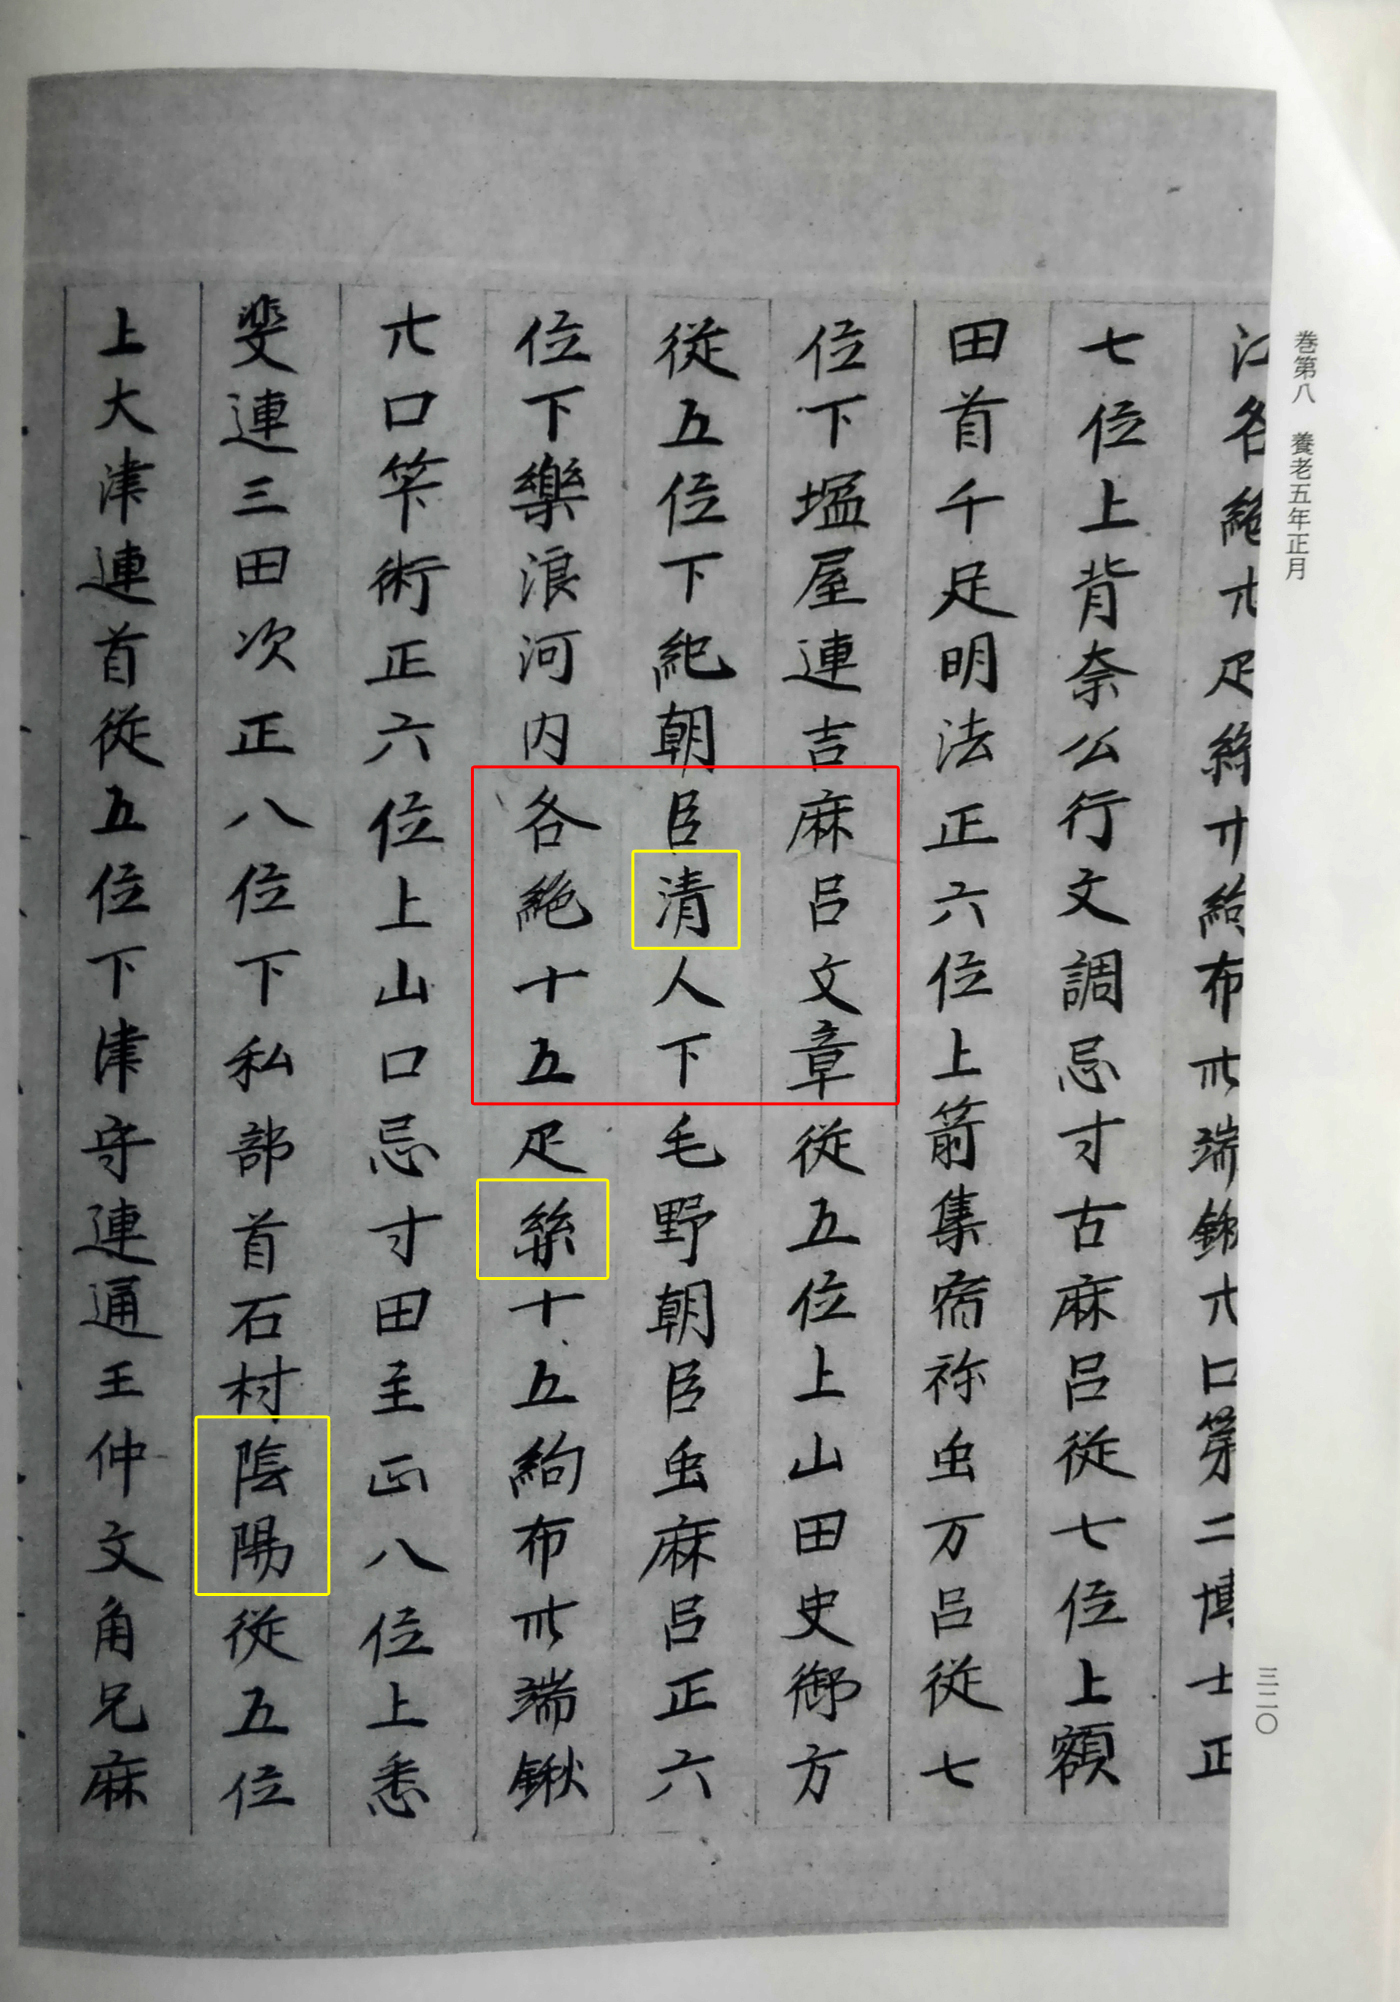 巻第八　養老五年正月
江各絁廾疋絲廾絇布卅端鍬廾口第二博士正
七位上背奈公行文調忌寸古麻呂従七位上額
田首千足明法正六位上箭集宿祢虫万呂従七
位下塩屋連吉麻呂文章従五位上山田史御方
従五位下紀朝臣清人下毛野朝臣虫麻呂正六
位下樂浪河内各絁十五疋絲十五絇布卅端鍬
廾口笇術正六位上山口忌寸田主正八位上悉
斐連三田次正八位下私部首石村陰陽従五位
上大津連首従五位下津守連通王仲文角兄麻
三二〇